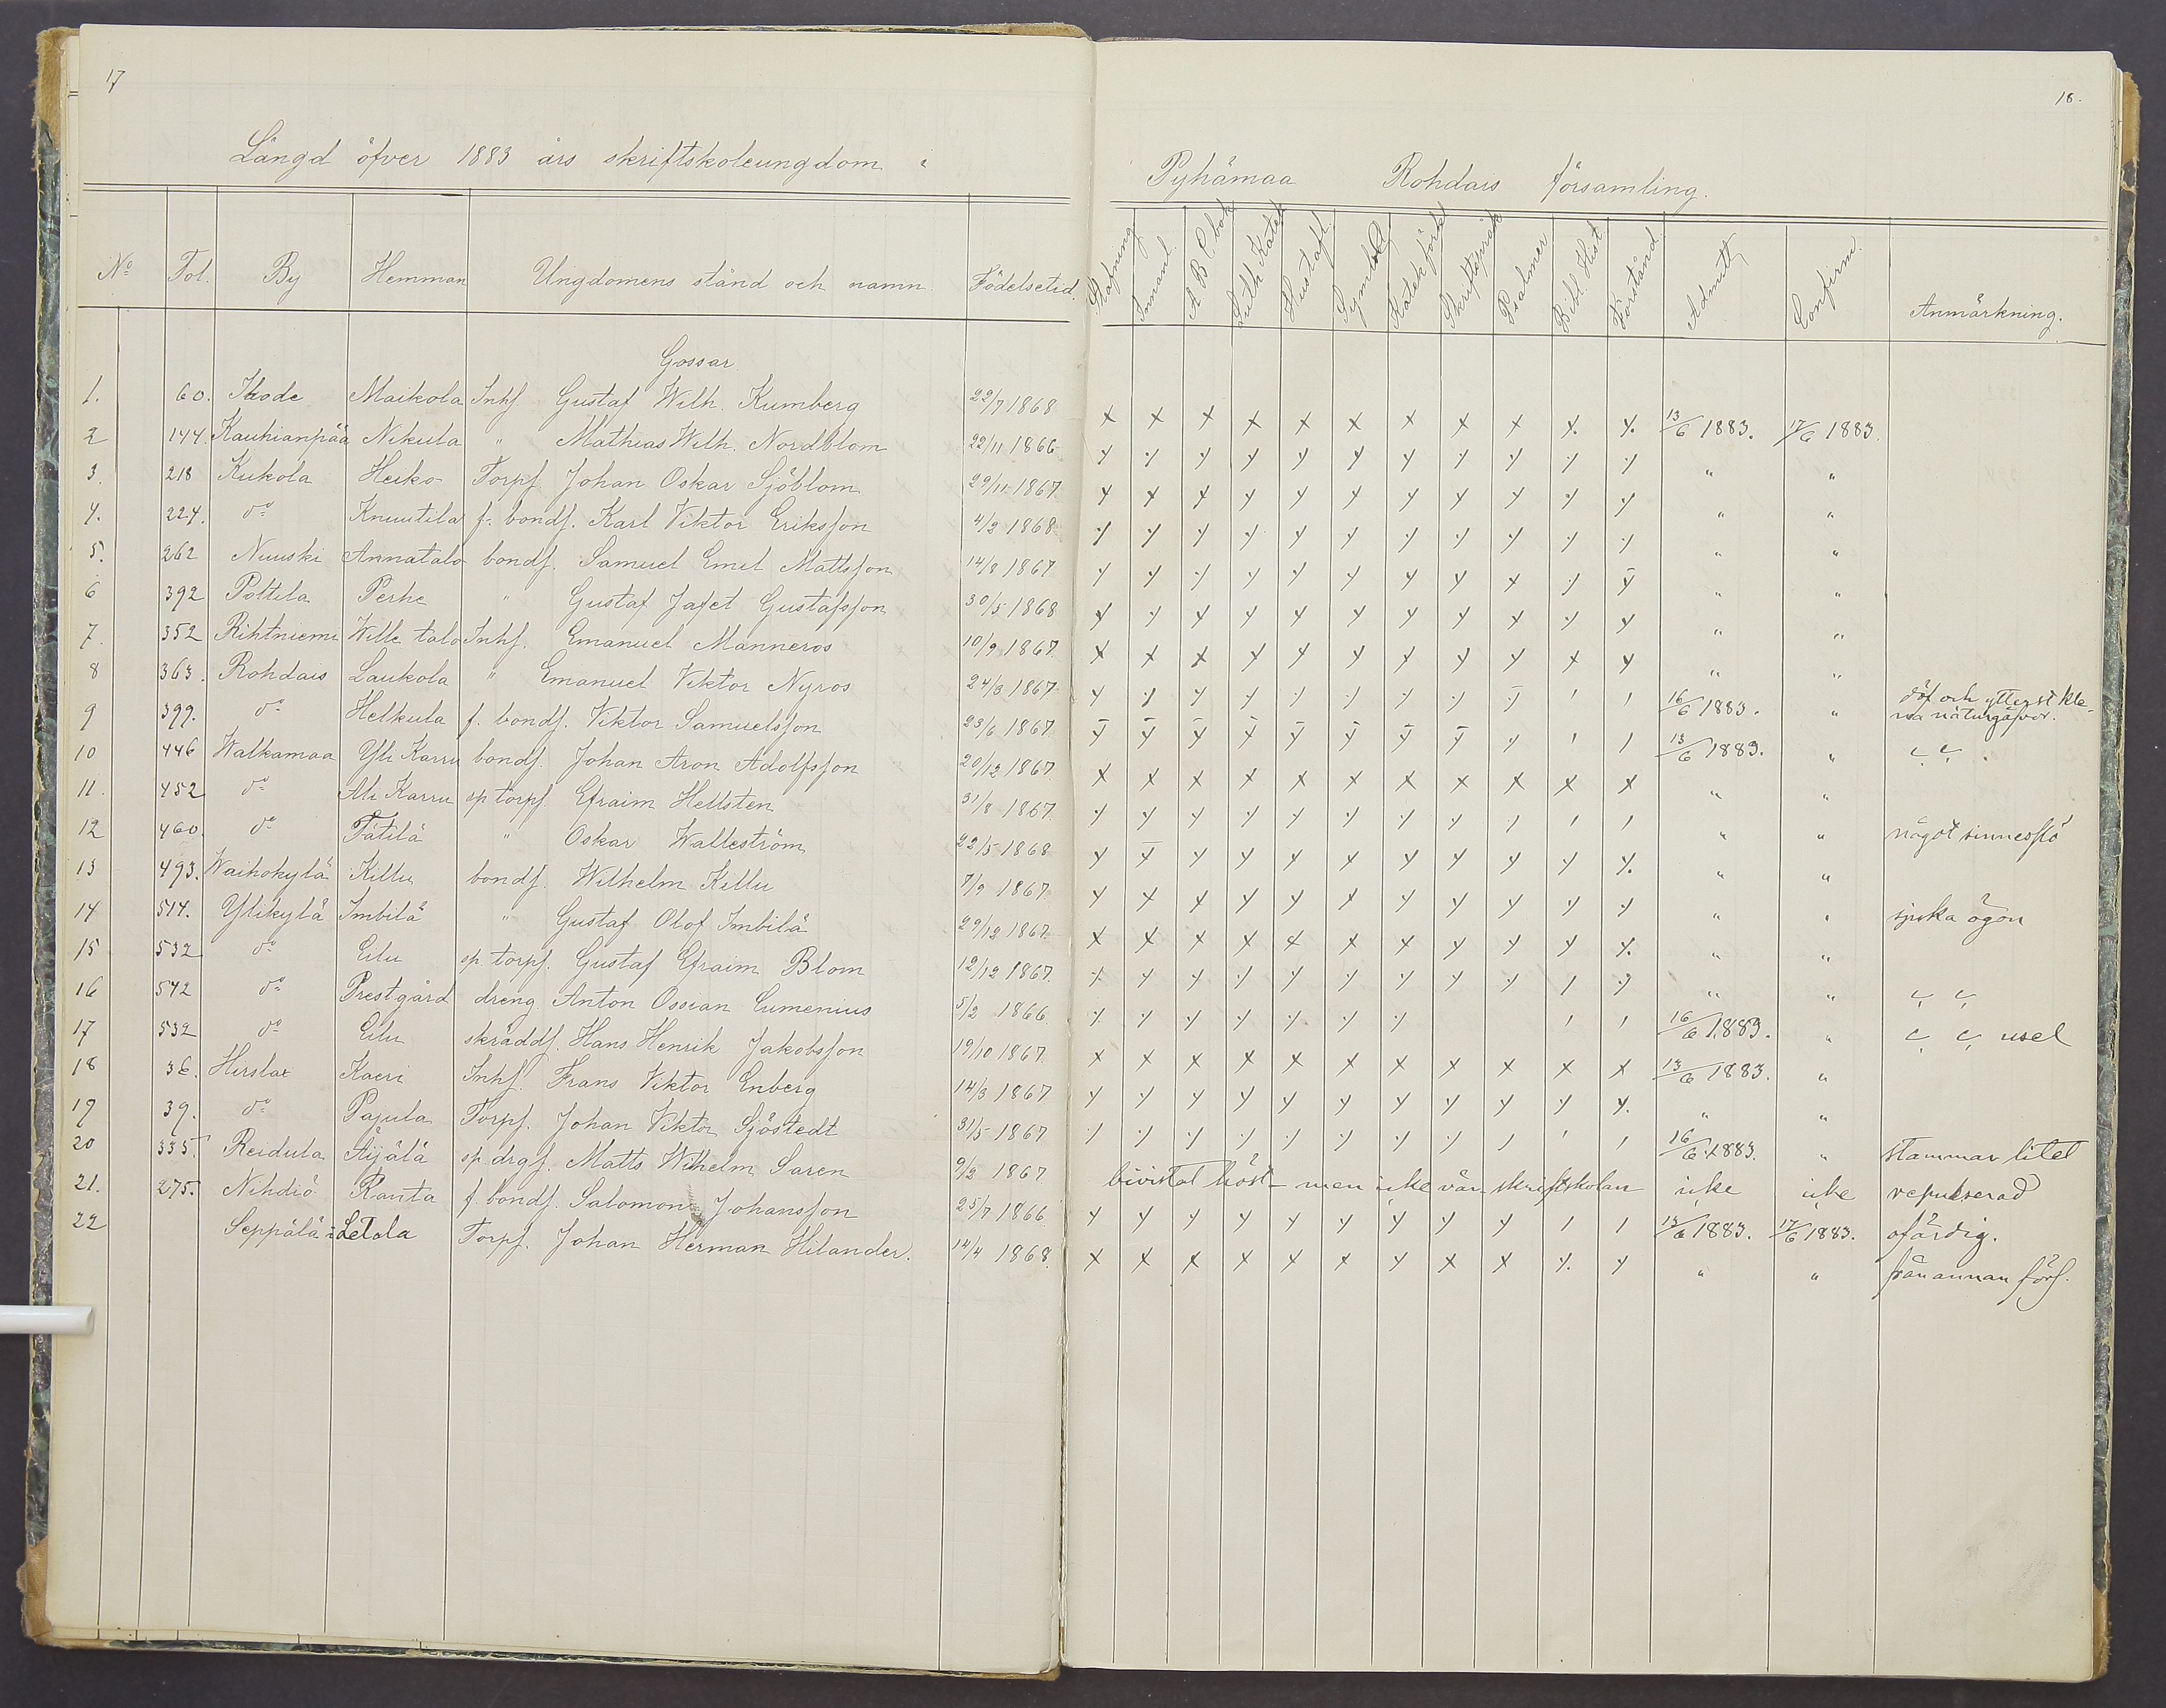 17
Längd öfver 1883 års skriftskoleungdom i
No Fol. By Hemman Ungdomens stånd och namn. Födelsetid.
Gossar
1. 60. Ihode Maikola Inhs. Gustaf Wilh. Kumberg 22/7 1868
2 144. Kauhianpää Nikula " Mathias Wilh. Nordblom 22/11 1866
3. 218 Kukola Heiko Torps. Johan Oskar Sjöblom 29/11 1867
4. 224. do Knuutila f. bonds. Karl Viktor Eriksson 4/2 1868
5. 262 Nuuski Annatalo bonds. Samuel Emil Mattsson 14/8 1867
6 392 Polttila Perhe " Gustaf Jafet Gustafsson 30/5 1868
7. 352 Rihtniemi Wille talo Inhs. Emanuel Manneros 10/9 1867.
8 363. Rohdais Laukola " Emanuel Viktor Nyros 24/3 1867
9 399. do Helkula f. bonds. Viktor Samuelsson 23/6 1867
10 446 Walkamaa Yli Karru bonds. Johan Aron Adolfsson 20/12 1867
11. 452 do Ali Karru sp torps. Efraim Hellsten 31/8 1867
12 460. do Tätilä " Oskar Walleström 22/5 1868
13 493. Waihokylä Killu bonds. Wilhelm Killu 7/9 1867
14 514. Ylikylä Imbilä " Gustaf Olof Imbilä 29/12 1867
15 532 do Eilu sp. torps. Gustaf Efraim Blom 12/12 1867.
16 542 do Prestgård dreng. Anton Ossian Cumenius 5/2 1866
17 532 do Eilu skrädds. Hans Henrik Jakobsson 19/10 1867.
18 36. Hirslax Kaeri Inhs. Frans Viktor Enberg 14/3 1867
19 39. do Pajula Torps. Johan Viktor Sjöstedt 31/5 1867
20 335. Reidula Äijälä sp. drgs. Matts Wilhelm Saren 9/2 1867
21. 275. Nihdiö Ranta f. bonds. Salomon Johansson 25/7 1866
22 Seppälä i Letala Torps. Johan Herman Hilander. 14/4 1868.
18.
Pyhämaa Rohdais församling.
Stafning Innand. A B C bok Luth. Katek Hustafl. Symbol Katek förkl Skriftspråk Psalmer Bibl. Hist Förstånd Admitt Confirm. Anmärkning.
x x x x x x x x x x. x. 13/6 1883. 17/6 1883.
" "
" "
" "
" "
" "
" "
16/6 1883. " döf och ytterst kle-
na naturgåfvor.
13/6 1883. "
" "
" " något sinnesslö
" "
" " sjuka ögon
" "
" "
16/6 1883. " usel
13/6 1883. "
" "
16/6 1883. " stammar litet
bivistat höst- men icke vår skriftskolan icke icke repulserad
13/6 1883. 17/6 1883. ofärdig.
x x x x x x x x x x. x " " från annan förs.